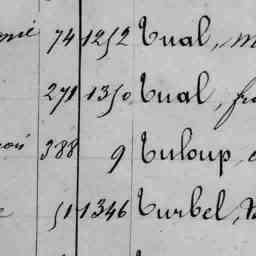 74 1252 Tual, m
271 1350 Tual, fra
388 9 Tuloup,
51 1346 Turbel,